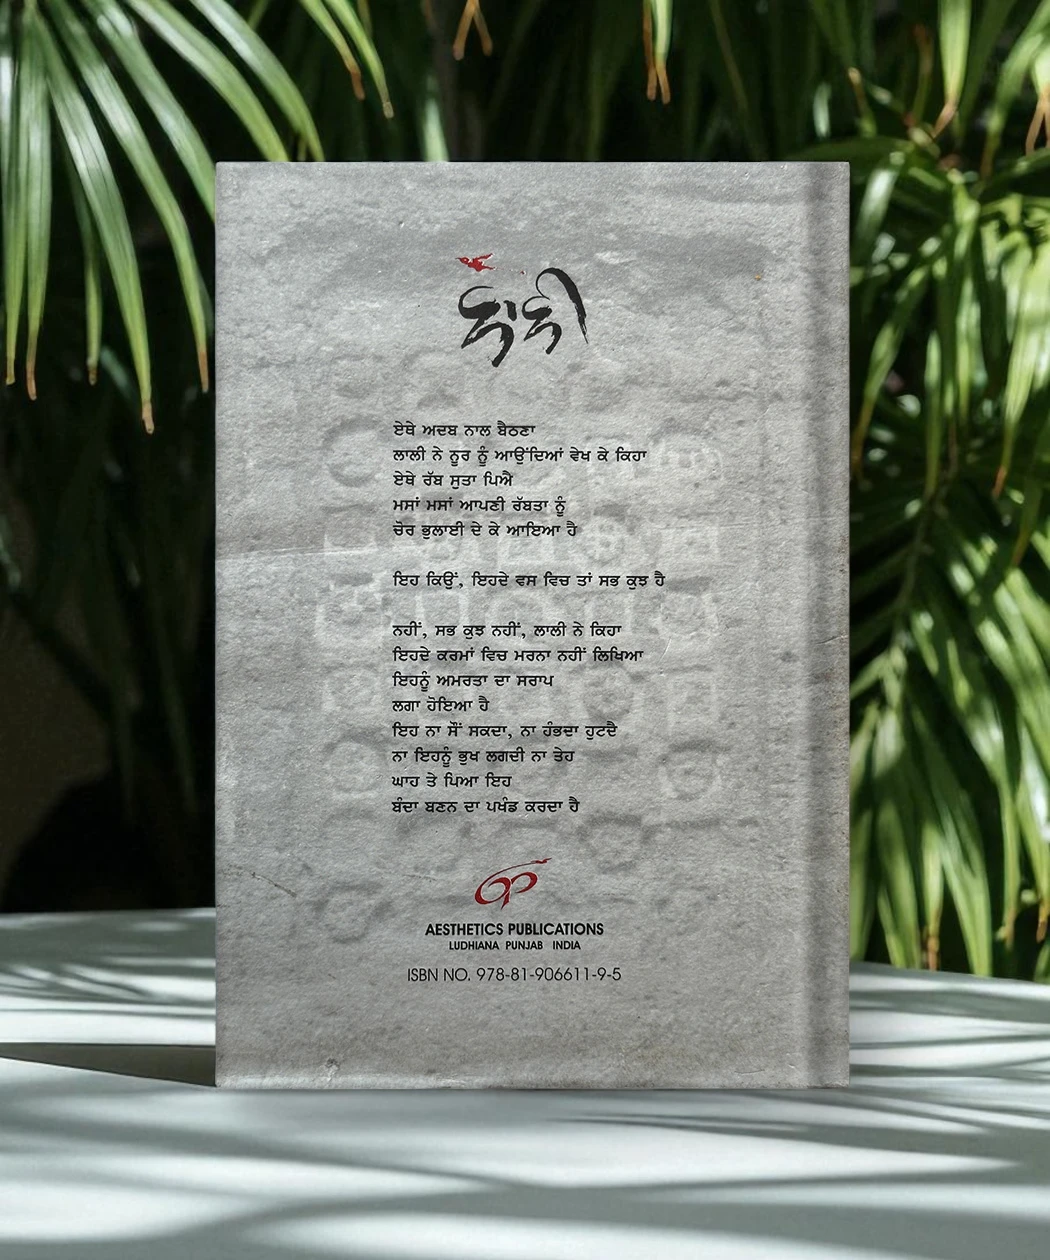 ਲਾਲੀ
ਏਥੇ ਅਦਬ ਨਾਲ ਬੈਠਣਾ
ਲਾਲੀ ਨੇ ਨੂਰ ਨੂੰ ਆਉਂਦਿਆਂ ਵੇਖ ਕੇ ਕਿਹਾ
ਏਥੇ ਰੱਬ ਸੁਤਾ ਪਿਐ
ਮਸਾਂ ਮਸਾਂ ਆਪਣੀ ਰੱਬਤਾ ਨੂੰ
ਚੋਰ ਭੁਲਾਈ ਦੇ ਕੇ ਆਇਆ ਹੈ
ਇਹ ਕਿਉਂ, ਇਹਦੇ ਵਸ ਵਿਚ ਤਾਂ ਸਭ ਕੁਝ ਹੈ
ਨਹੀਂ, ਸਭ ਕੁਝ ਨਹੀਂ, ਲਾਲੀ ਨੇ ਕਿਹਾ
ਇਹਦੇ ਕਰਮਾਂ ਵਿਚ ਮਰਨਾ ਨਹੀਂ ਲਿਖਿਆ
ਇਹਨੂੰ ਅਮਰਤਾ ਦਾ ਸਰਾਪ
ਲਗਾ ਹੋਇਆ ਹੈ
ਇਹ ਨਾ ਸੌਂ ਸਕਦਾ, ਨਾ ਹੰਭਦਾ ਹੁਟਦੈ
ਨਾ ਇਹਨੂੰ ਭੁਖ ਲਗਦੀ ਨਾ ਤੇਹ
ਘਾਹ ਤੇ ਪਿਆ ਇਹ
ਬੰਦਾ ਬਣਨ ਦਾ ਪਖੰਡ ਕਰਦਾ ਹੈ
AESTHETICS PUBLICATIONS
LUDHIANA PUNJAB INDIA
ISBN NO. 978-81-906611-9-5